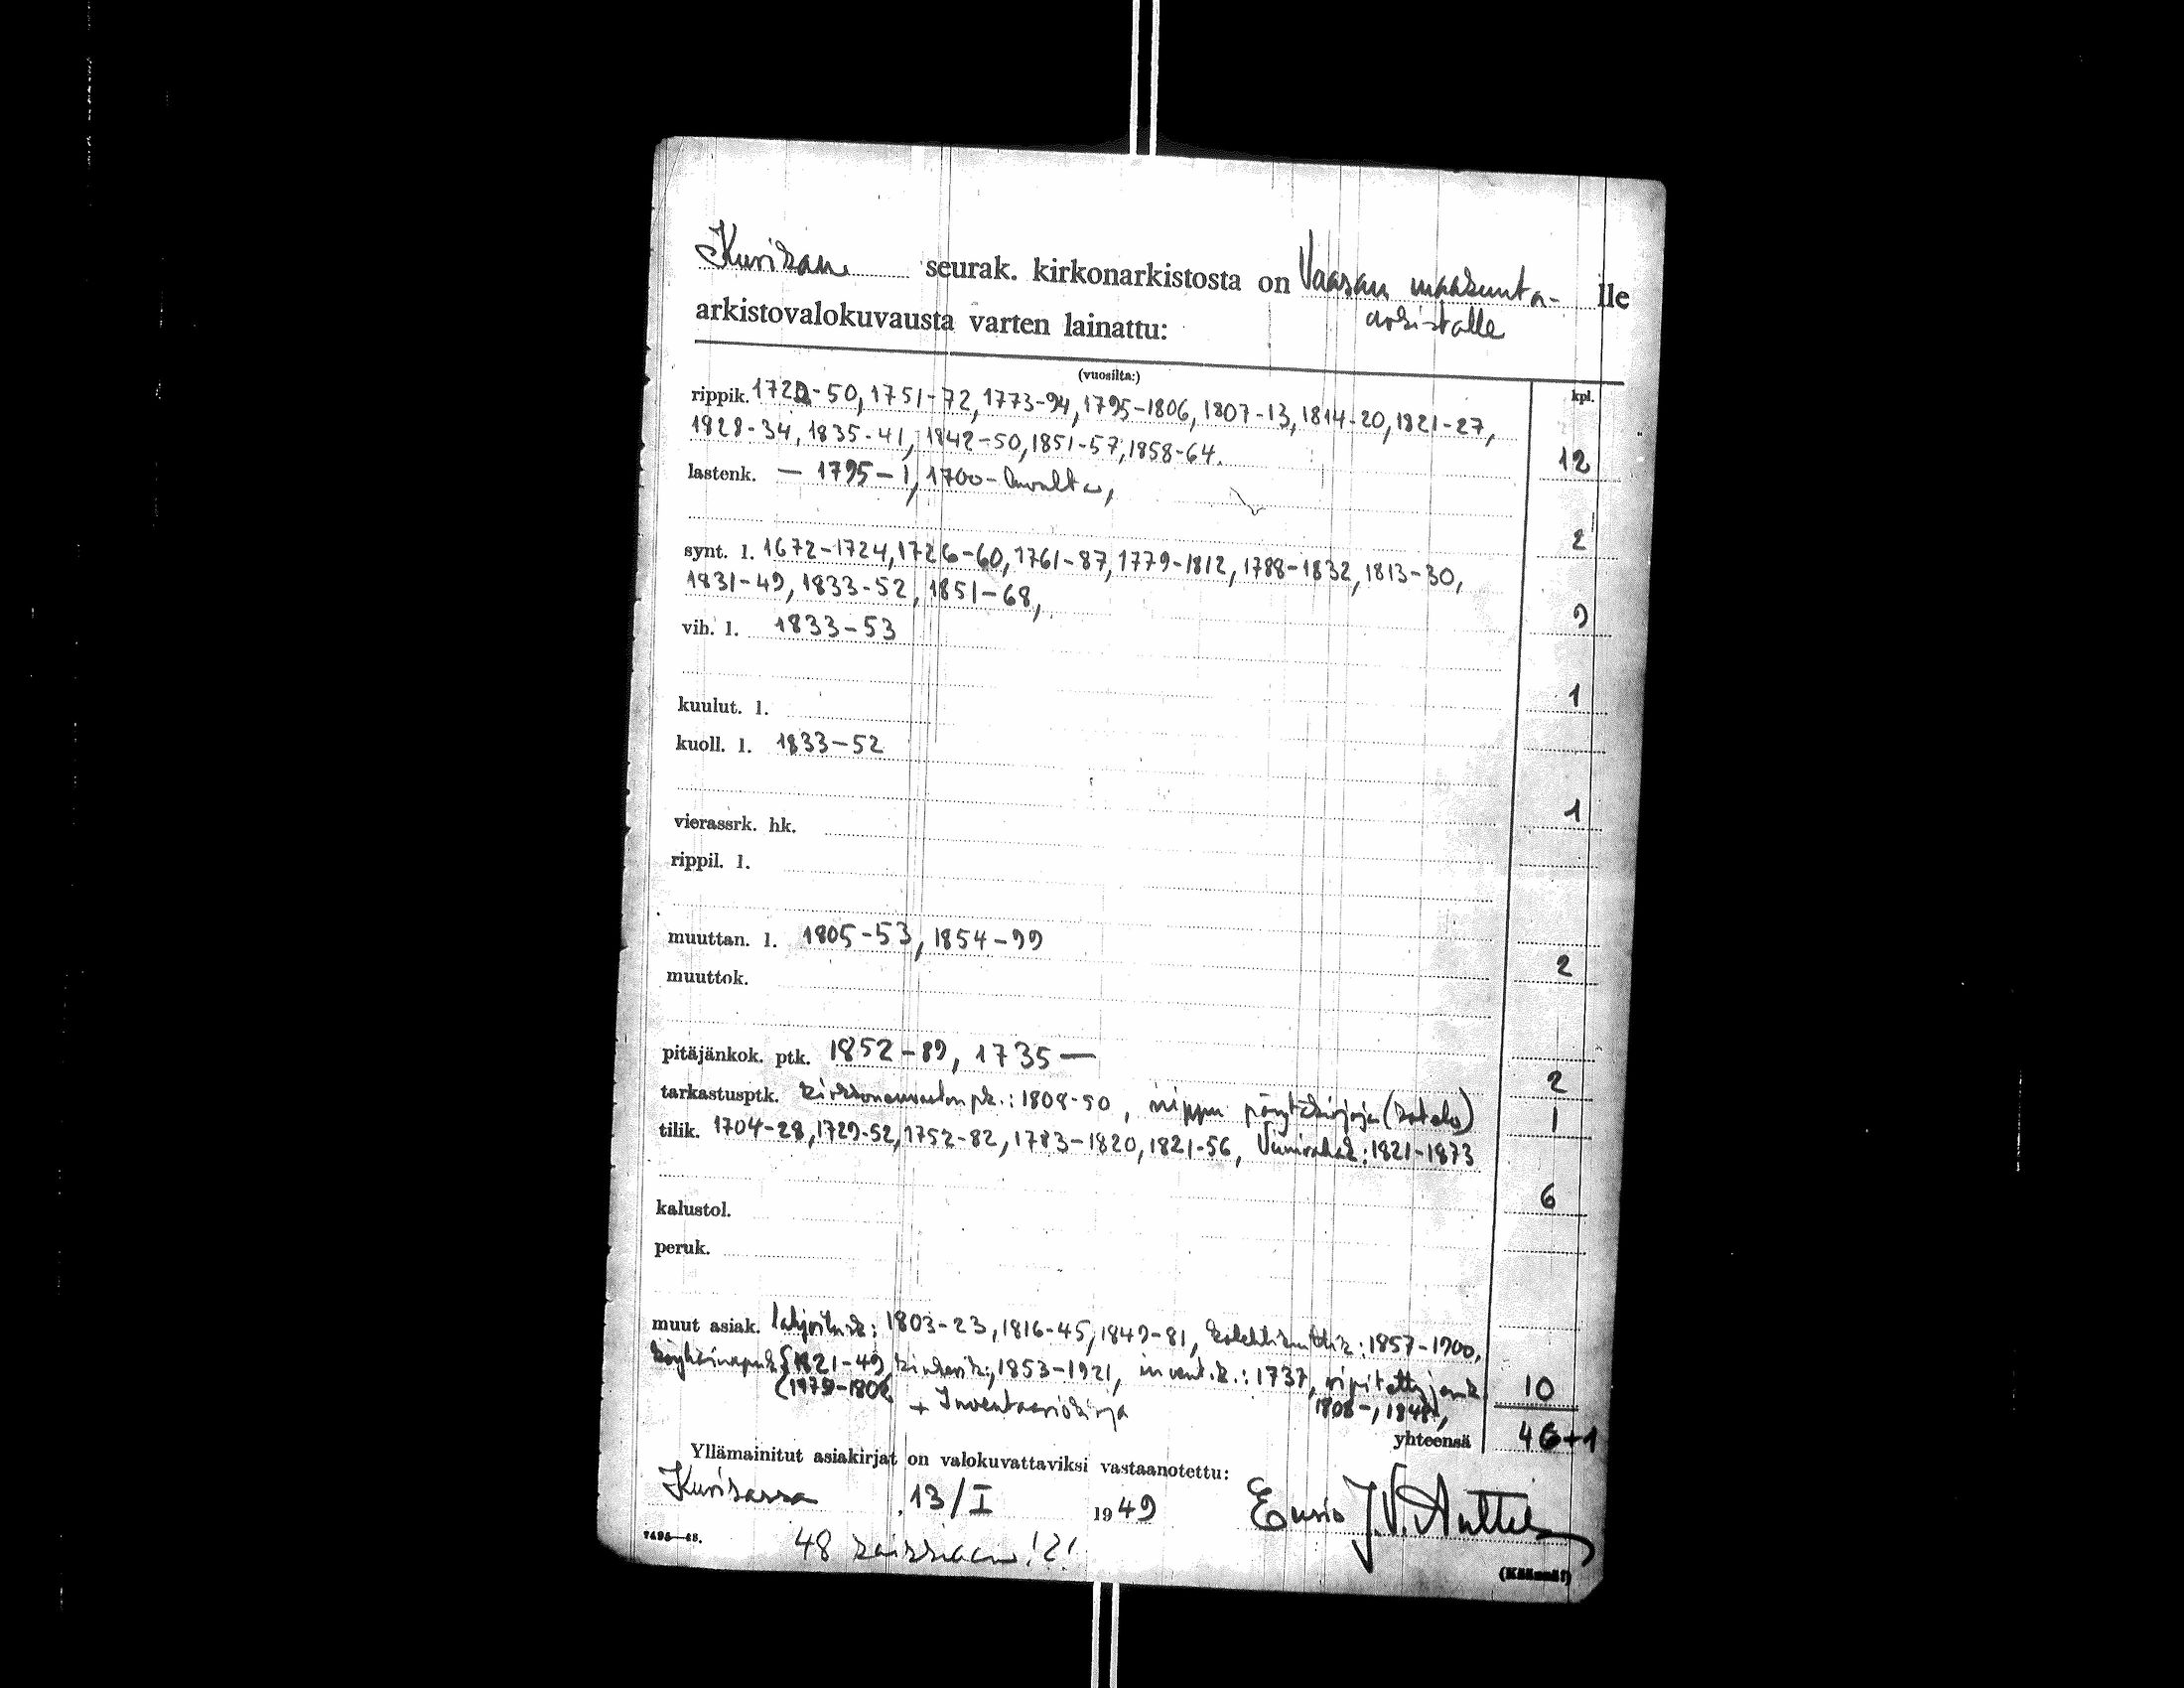 Kurikan seurak. kirkonarkistosta on Vaasan maakunta- lle
arkistovalokuvausta varten lainattu: arkistolle
(vuosilta:) kpl.
rippik. 1722-50, 1751-72, 1773-94, 1795-1806, 1807-13, 1814-20, 1821-27,
1828-34, 1835-41, 1842-50, 1851-57, 1858-64. 12
lastenk. — 1795 – 1, 1700-luvulta,
2
synt. l. 1672-1724, 1726-60, 1761-87, 1779-1812, 1788-1832, 1813-30,
1831-49, 1833-52, 1851-68, 9
vih. l. 1833-53
1
kuulut. l.
kuoll. l. 1833-52
1
vierassrk. hk.
rippil. l.
muuttan. l. 1805-53, 1854-99 2
muuttok.
pitäjänkok. ptk. 1852-89, 1735 — 2
tarkastusptk. kirkonneuvoston pk.: 1808-50, nippu pöytäkirjoja (kotelo) 1
tilik. 1704-28, 1729-52, 1752-82, 1783-1820, 1821-56, Viinirahat: 1821-1873
6
kalustol.
peruk.
muut asiak. 1803-23, 1816-45, 1849-81, 1857-1900,
1821-49, 1853-1921, invent.k.: 1737, 10
+ Inventaariokirja 1848-,
yhteensä 46+1
Yllämainitut asiakirjat on valokuvattaviksi vastaanotettu:
Kurikassa 13/I 1949 Ensio J.V. Anttila
7495—48. 48 kaikkiaan!?!
(Käännä!)